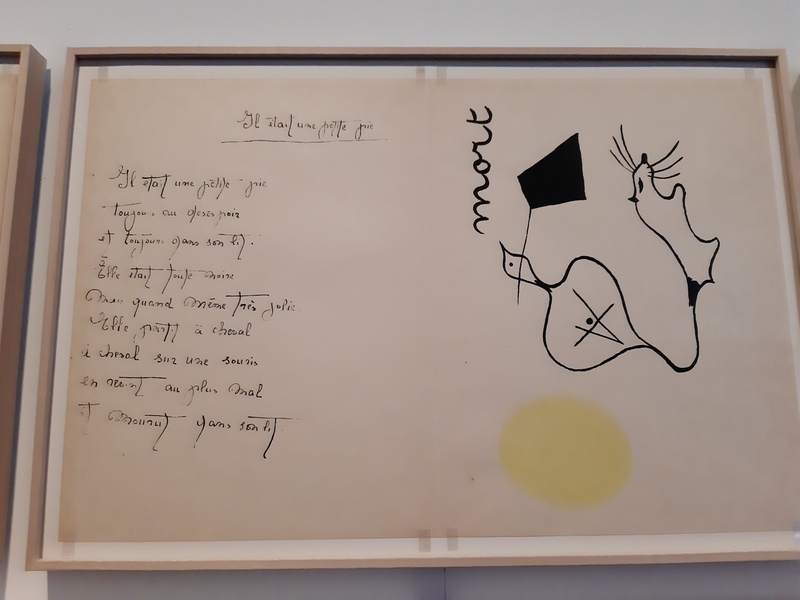 Il était une petite pie
Il était une petite pie
toujours au desespoir
et toujours dans son lit.
Elle était toute noire
Mais quand même très jolie
Elle partit à cheval
à cheval sur une souris
en revint au plus mal
et mourut dans son lit
mort